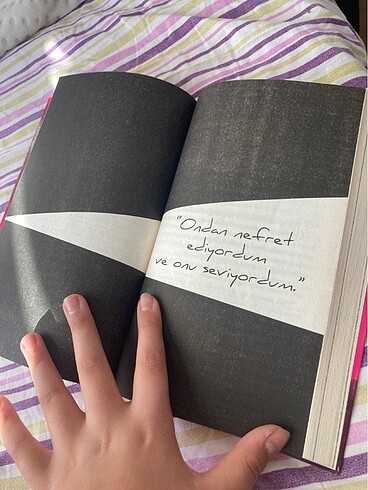 "Ondan nefret
ediyordum
ve onu seviyordum."